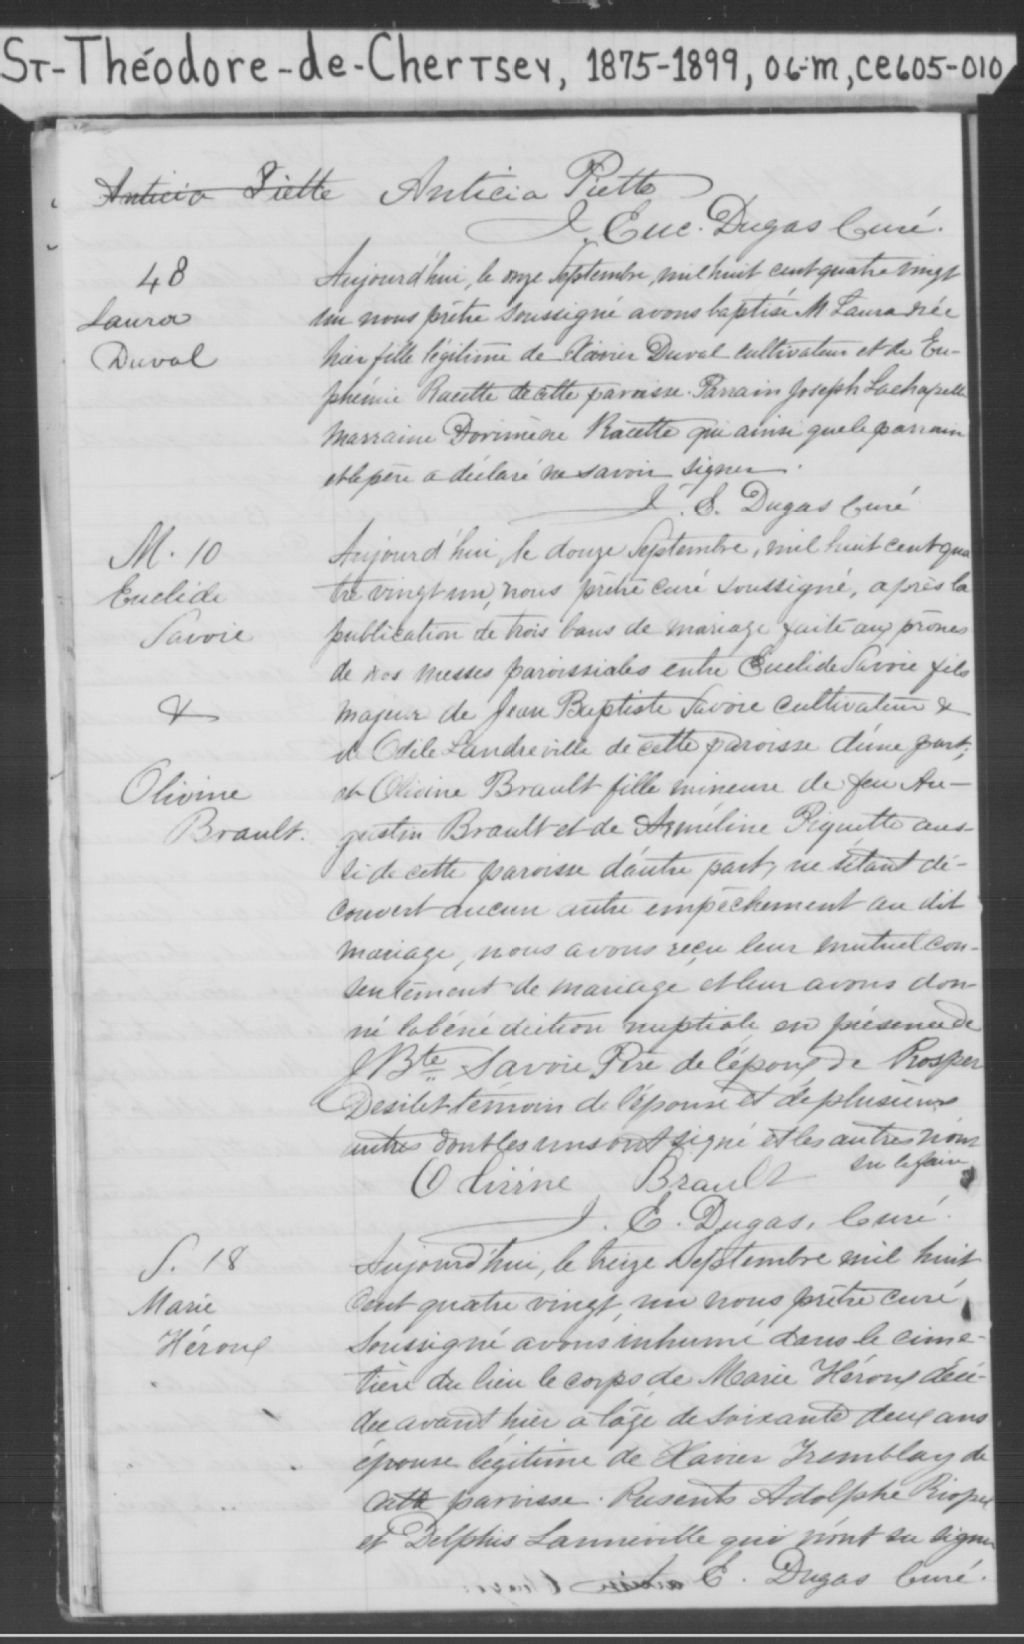 St-Théodore-de-Chertsey, 1875-1899, 06-m, ce605-010
Anticia Piette Anticia Piette
J. Euc. Dugas Curé.
48 Aujourd'hui, le onze Septembre, mil huit cent quatre vingt
Laura un nous prêtre soussigné avons baptisé M Laura née
Duval hier fille légitime de Xavier Duval cultivateur et de Eu-
phémie Racette de cette paroisse. Parrain Joseph Lachapelle
Marraine Dorimène Racette qui ainsi que le parrain
et le père a déclaré ne savoir signer.
J. E. Dugas Curé
M. 10 Aujourd'hui, le douze Septembre, mil huit cent qua
Euclide tre vingt un, nous prêtre curé soussigné, après la
Savoie publication de trois bans de mariage faite aux prônes
de nos messes paroissiales entre Euclide Savoie fils
& majeur de Jean Baptiste Savoie cultivateur &
de Odile Landreville de cette paroisse d'une part;
Olivine et Olivine Brault fille mineure de feu Au-
Brault. gustin Brault et de Arméline Piquette aus-
si de cette paroisse d'autre part, ne s'étant dé-
couvert aucun autre empêchement au dit
mariage, nous avons reçu leur mutuel con-
sentement de mariage et leur avons don-
né la bénédiction nuptiale en présence de
J Bte Savoie Père de l'époux de Prosper
Desilet témoin de l'épouse et de plusieurs
autres dont les uns ont signé et les autres n'ont
su le faire
Olivine Brault
J. E. Dugas, Curé.
S. 18 Aujourd'hui, le treize Septembre mil huit
Marie Cent quatre vingt un nous prêtre curé
Héroux Soussigné avons inhumé dans le cime-
tière du lieu le corps de Marie Héroux décé-
dée avant hier a l'âge de soixante deux ans
épouse légitime de Xavier Tremblay de
cette paroisse. Présents Adolphe Riopel
et Delphis Lanneville qui n'ont su signer
E. Dugas Curé.